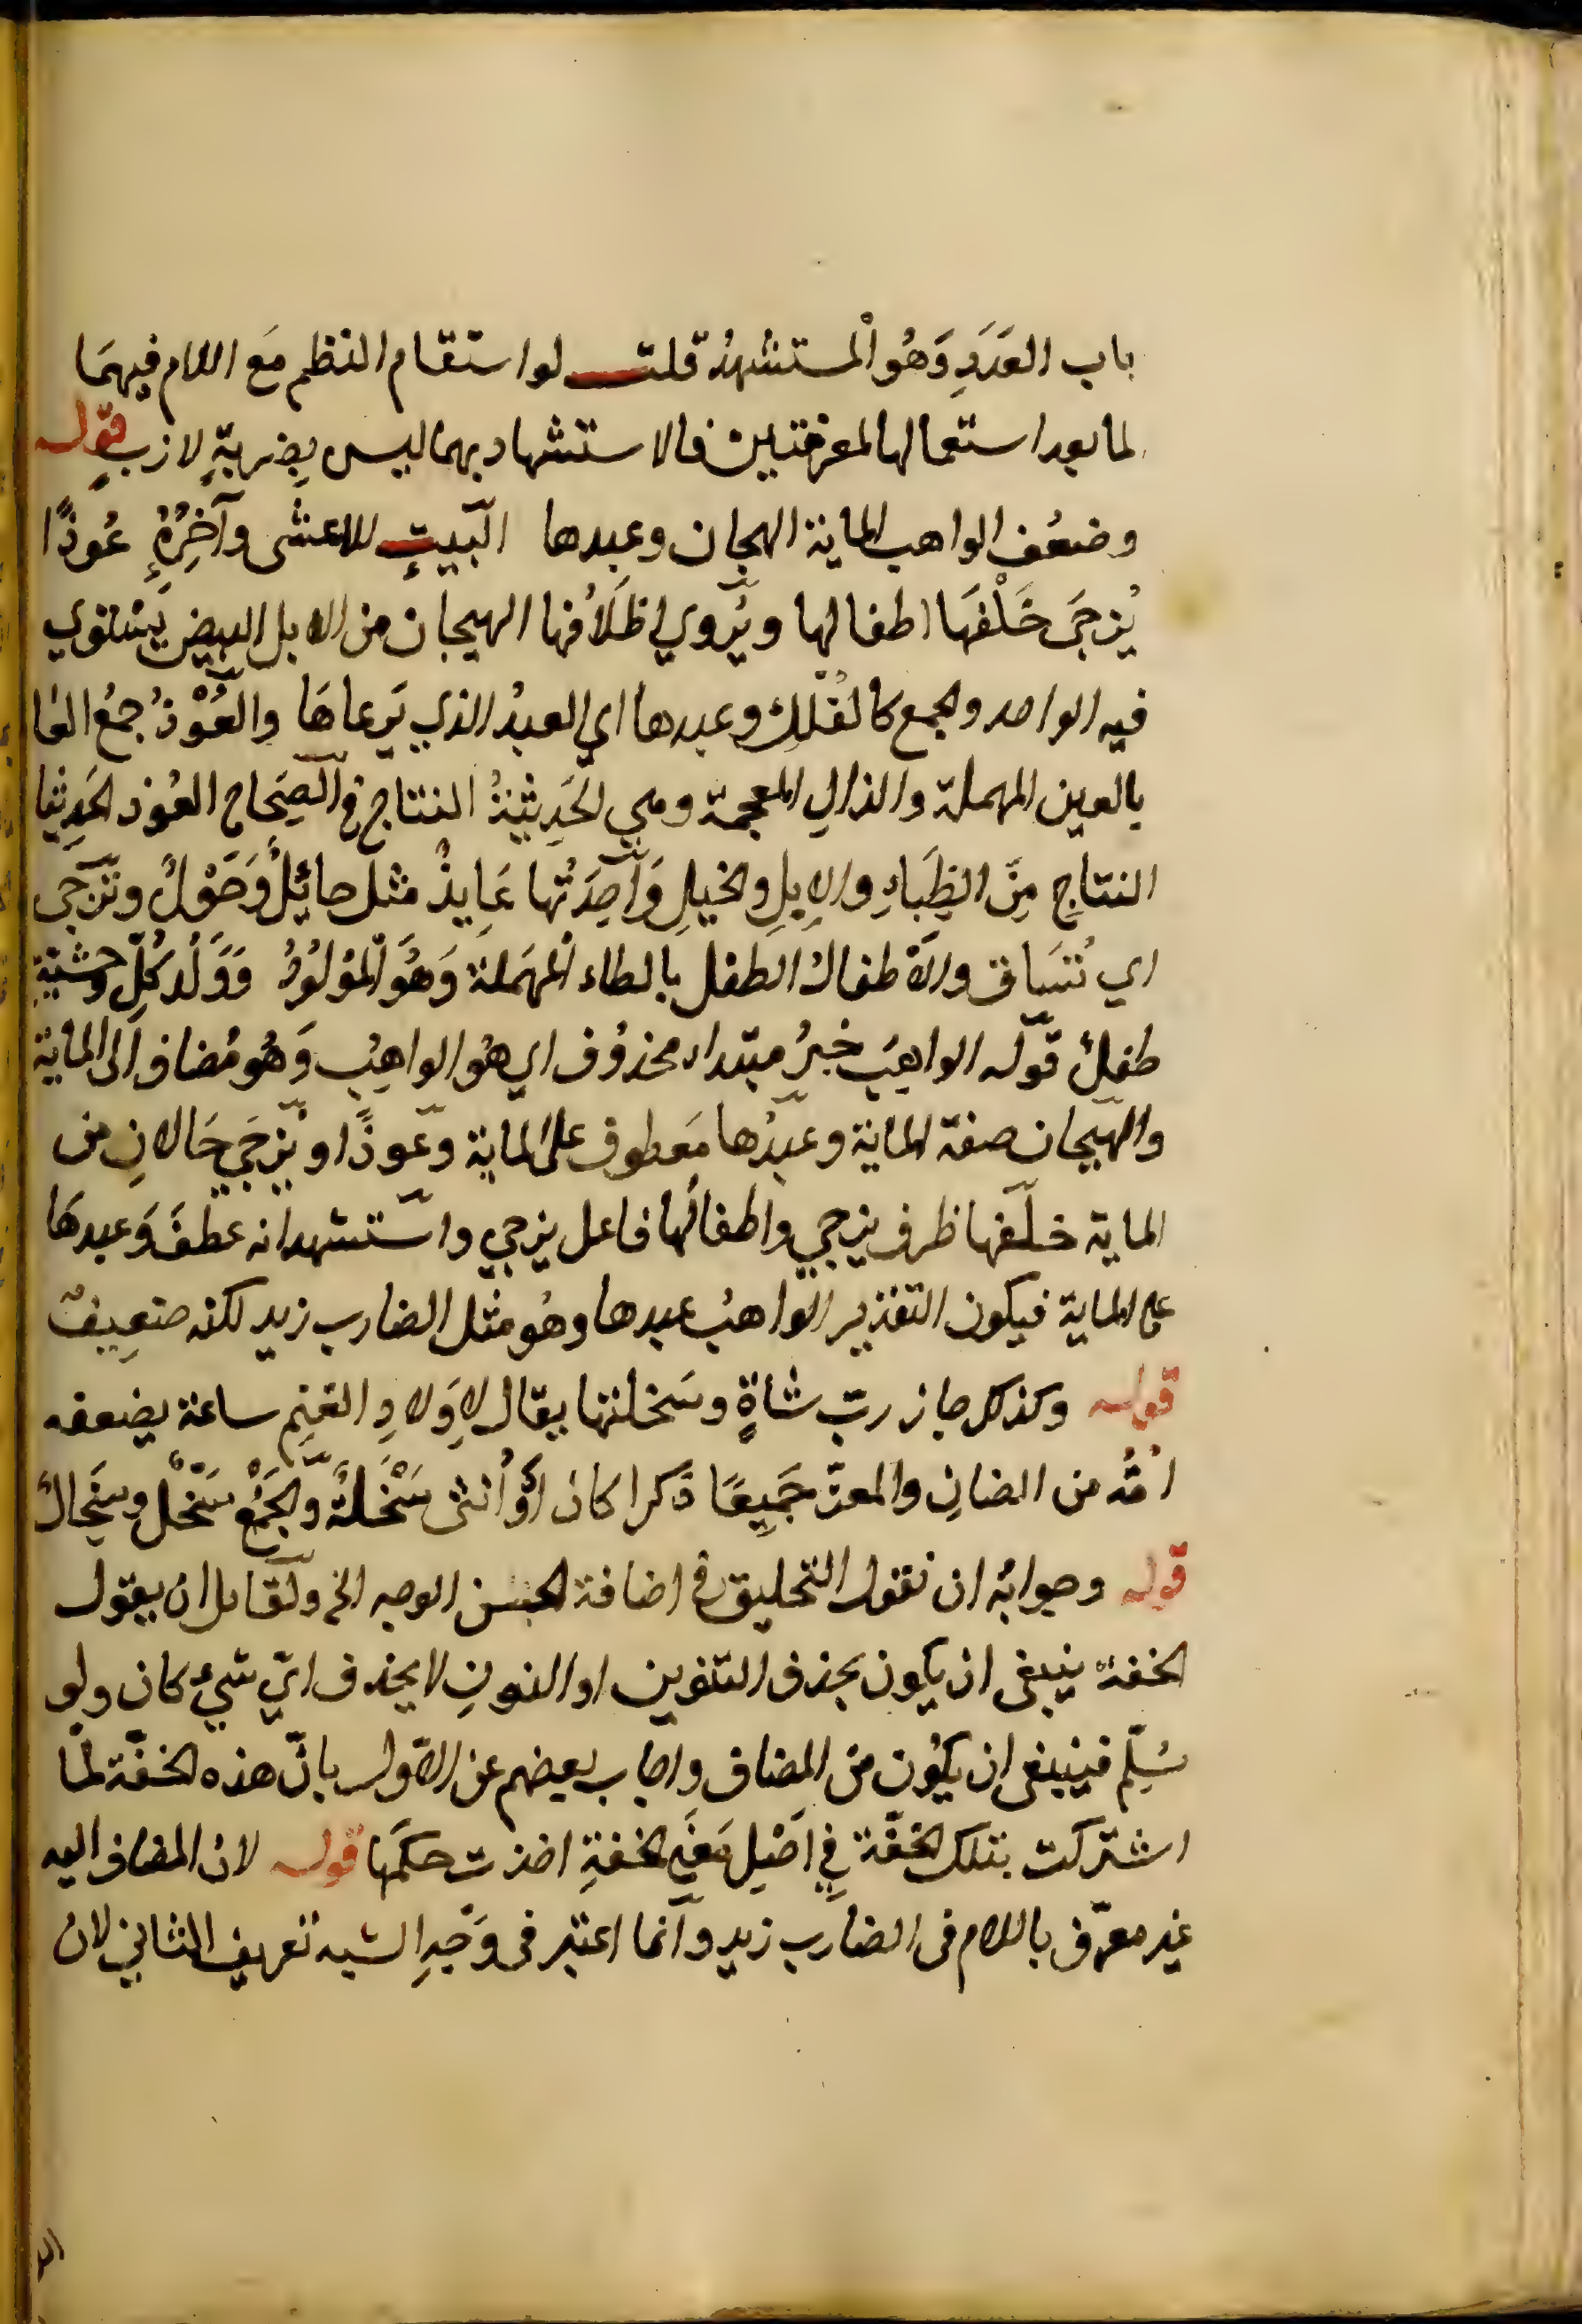 باب العَدَدِ وَهُو المستشهدُ قلت لو استقام النظم مَع اللام فيهمَا
لما بعد استعمالها لمعرفتين فالاستشهاد بهما ليس بِضربةِ لازبٍ قوله
وضعُف الواهب الماية الهجان وعبدها البَيتِ للاعشى وآخِرُهُ عُوذًا
يُزجَى خَلْفَهَا اطفالها ويُروي اظلافها الهيجان من الابل البيض يَستوي
فيه الواحد والجمع كالفُلك وعبدها اي العبدُ الذي يَرعاهَا والعُوْذُ جمعُ العا
بالعين المهملة والذالِ المعجمة وهي الحَدِيثةُ النتاج في الصِّحاح العُوذ الحَدِيثا
النتاجِ مِنَ الظِبَاءِ والإبِلِ والخيلِ وَاحِدَتُها عَايِذٌ مثل حائِلٌ وَحَوْلٌ وتزجى
اي تُسَاق والاطفال الطفل بالطاء المهمَلة وَهُوَ المَوْلُوْدُ وَوَلَدُ كُلِّ وحشيَّةٍ
طفلٌ قوله الواهِبَ خبرُ مبتداء محذوُف اي هُو الواهِبُ وَهُو مُضاف الى الماية
والهيجان صفة الماية وعبدُها مَعطوف على الماية وعوذًا ويُزجَي حَالانِ من
الماية خلفها ظرف يزجي واطفالُها فاعل يزجي واستشهد انه عطفَ وَعبدهَا
على الماية فيكون التقدير الواهبُ عبدها وهُو مثل الضارب زيد لكنه ضعِيفٌ
قوله وكذلك جاز ربّ شاةٍ وسَخلتها يقال لاِوَلادِ الغنِم ساعة يضعفه
اُمُّه من الضانِ والمعز جَمِيعًا ذكرا كان أوْ اُنثى سَخْلَةٌ والجَمْعُ سَخْلٌ وسِخَالٌ
قوله وجوابُه ان نقول التحليق في اضافة الحسن الوجه الخ ولقايل ان يقول
الخفةُ ينبغى ان يكون بحذف التنوين او النونِ لا بحذف ايّ شيءٍ كان ولو
سُلِّم فينبغى ان يكوُن من المضاف واجاب بعضهم عن الاوّل بانّ هذه الخفّة لمّا
اشتركت بتلك الخفّة فِي اَصْلِ مَعنَي الخفةِ اخذت حكمَها قوله لان المضاف اليه
غير معرّف باللام فى الضارب زيد وانما اعتبر فى وَجْهِ الشبه تعريف الثاني لان